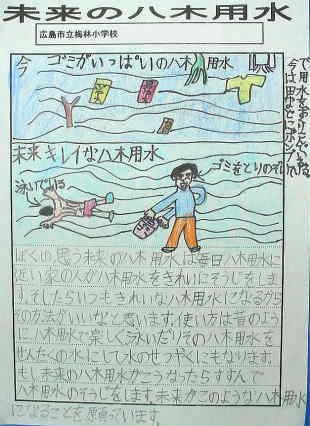 未来の八木用水
広島市立梅林小学校
今 ゴミがいっぱいの八木用水
未来 キレイな八木用水
ゴミをとりのぞいて
泳いでいる
ぼくの思う未来の八木用水は毎日八木用水に
近い家の人が八木用水をきれいにそうじをしま
す。そしたらいつもきれいな八木用水になるから
その方法がいいなと思います。使い方は昔のよう
に八木用水で楽しく泳いだりその八木用水を
せんたくの水にして水のせつやくにもなります。
もし未来の八木用水がこうなったらすすんで
八木用水のそうじをします。未来がこのような八木用水
になることを願っています。